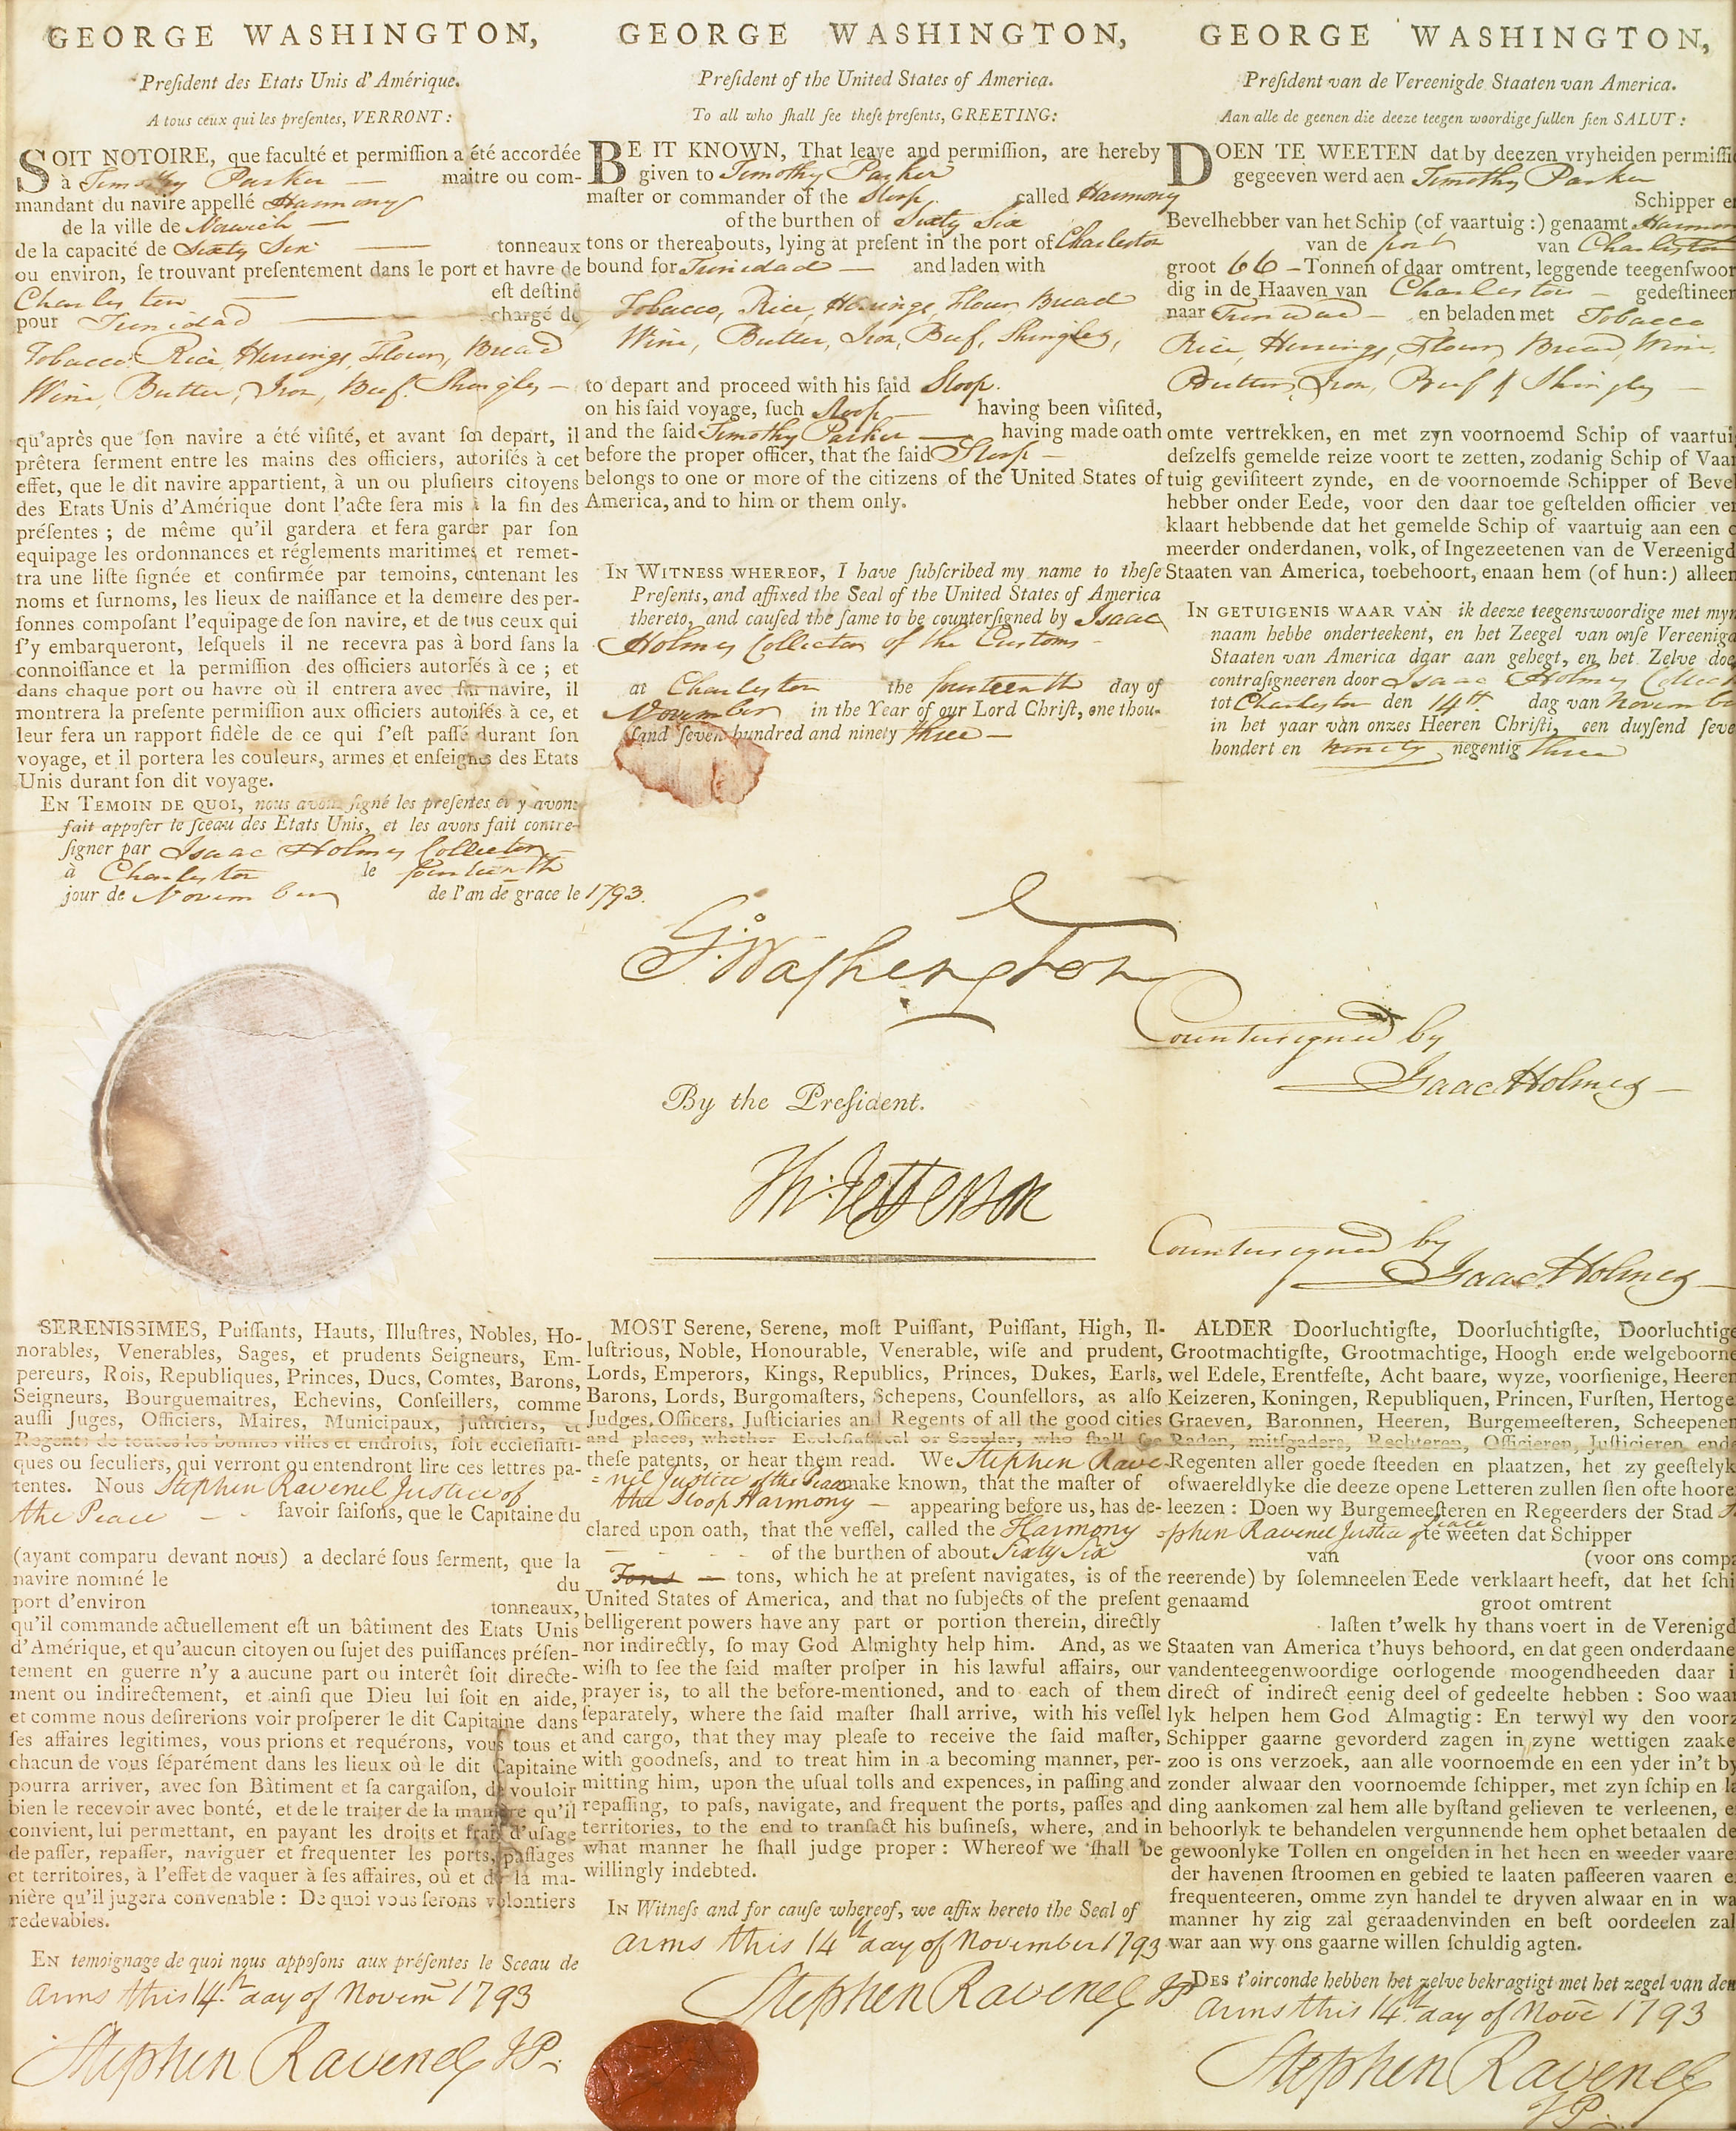 GEORGE WASHINGTON,
Preſident des Etats Unis d'Amérique.
A tous ceux qui les preſentes, VERRONT :
SOIT NOTOIRE, que faculté et permiſſion a été accordée
à Timothy Parker — maitre ou com-
mandant du navire appellé Harmony
de la ville de Norwich —
de la capacité de Sixty Six — tonneaux
ou environ, ſe trouvant preſentement dans le port et havre de
Charleston — eſt deſtiné
pour Trinidad — chargé de
Tobacco, Rice, Herrings, Flour, Bread
Wine, Butter, Iron, Beef, Shingles —
qu'après que ſon navire a été viſité, et avant ſon depart, il
prêtera ſerment entre les mains des officiers, autoriſés à cet
effet, que le dit navire appartient, à un ou pluſieurs citoyens
des Etats Unis d'Amérique dont l'acte ſera mis à la fin des
préſentes ; de même qu'il gardera et fera garder par ſon
equipage les ordonnances et réglements maritimes et remet-
tra une liſte ſignée et confirmée par temoins, contenant les
noms et ſurnoms, les lieux de naiſſance et la demeure des per-
ſonnes compoſant l'equipage de ſon navire, et de tous ceux qui
ſ'y embarqueront, leſquels il ne recevra pas à bord ſans la
connoiſſance et la permiſſion des officiers autoriſés à ce ; et
dans chaque port ou havre où il entrera avec ſon navire, il
montrera la preſente permiſſion aux officiers autoriſés à ce, et
leur fera un rapport fidèle de ce qui ſ'eſt paſſé durant ſon
voyage, et il portera les couleurs, armes et enſeignes des Etats
Unis durant ſon dit voyage.
EN TEMOIN DE QUOI, nous avons ſigné les preſentes et y avons
fait appoſer le ſceau des Etats Unis, et les avons fait contre-
ſigner par Isaac Holmes Collector
à Charleston le fourteenth
jour de November de l'an de grace le 1793.
GEORGE WASHINGTON,
Preſident of the United States of America.
To all who ſhall ſee theſe preſents, GREETING:
BE IT KNOWN, That leave and permiſſion, are hereby
given to Timothy Parker
maſter or commander of the Sloop called Harmony
of the burthen of Sixty Six
tons or thereabouts, lying at preſent in the port of Charleston
bound for Trinidad — and laden with
Tobacco, Rice, Herrings, Flour, Bread
Wine, Butter, Iron, Beef, Shingles,
to depart and proceed with his ſaid Sloop.
on his ſaid voyage, ſuch Sloop — having been viſited,
and the ſaid Timothy Parker — having made oath
before the proper officer, that the ſaid Sloop —
belongs to one or more of the citizens of the United States of
America, and to him or them only.
IN WITNESS WHEREOF, I have ſubſcribed my name to theſe
Preſents, and affixed the Seal of the United States of America
thereto, and cauſed the ſame to be counterſigned by Isaac
Holmes Collector of the Customs —
at Charleston the fourteenth day of
November in the Year of our Lord Chriſt, one thou-
ſand ſeven hundred and ninety three —
GEORGE WASHINGTON,
Preſident van de Vereenigde Staaten van America.
Aan alle de geenen die deeze teegen woordige ſullen ſien SALUT :
DOEN TE WEETEN dat by deezen vryheiden permiſſie
gegeeven werd aen Timothy Parker
Schipper e
Bevelhebber van het Schip (of vaartuig :) genaamt Harmon
van de port van Charleston
groot 66 — Tonnen of daar omtrent, leggende teegenſwoor
dig in de Haaven van Charleston — gedeſtineer
naar Trinidad — en beladen met Tobacco
Rice, Herrings, Flour, Bread, Wine,
Butter, Iron, Beef & Shingles —
omte vertrekken, en met zyn voornoemd Schip of vaartui
deſzelfs gemelde reize voort te zetten, zodanig Schip of Vaar
tuig geviſiteert zynde, en de voornoemde Schipper of Bevel
hebber onder Eede, voor den daar toe geſtelden officier ver
klaart hebbende dat het gemelde Schip of vaartuig aan een o
meerder onderdanen, volk, of Ingezeetenen van de Vereenigd
Staaten van America, toebehoort, enaan hem (of hun:) alleen
IN GETUIGENIS WAAR VAN ik deeze teegenswoordige met myn
naam hebbe onderteekent, en het Zeegel van onſe Vereenigd
Staaten van America daar aan gehegt, en het Zelve doo
contraſigneeren door Isaac Holmes Collect
tot Charleston den 14th dag van November
in het yaar van onzes Heeren Chriſti, een duyſend ſeve
hondert en ninety negentig three
Go: Washington
Countersigned by
Isaac Holmes —
By the Preſident.
Th: Jefferson
Countersigned by
Isaac Holmes —
SERENISSIMES, Puiſſants, Hauts, Illuſtres, Nobles, Ho-
norables, Venerables, Sages, et prudents Seigneurs, Em-
pereurs, Rois, Republiques, Princes, Ducs, Comtes, Barons,
Seigneurs, Bourguemaitres, Echevins, Conſeillers, comme
auſſi Juges, Officiers, Maires, Municipaux, Juſticiers, et
Regents de toutes les bonnes villes et endroits, ſoit eccleſiaſti-
ques ou ſeculiers, qui verront ou entendront lire ces lettres pa-
tentes. Nous Stephen Ravenel Justice of
the Peace — ſavoir faiſons, que le Capitaine du
(ayant comparu devant nous) a declaré ſous ſerment, que la
navire nominé le du
port d'environ tonneaux,
qu'il commande actuellement eſt un bâtiment des Etats Unis
d'Amérique, et qu'aucun citoyen ou ſujet des puiſſances préſen-
tement en guerre n'y a aucune part ou interêt ſoit directe-
ment ou indirectement, et ainſi que Dieu lui ſoit en aide,
et comme nous deſirerions voir proſperer le dit Capitaine dans
ſes affaires legitimes, vous prions et requérons, vous tous et
chacun de vous ſéparément dans les lieux où le dit Capitaine
pourra arriver, avec ſon Bâtiment et ſa cargaiſon, de vouloir
bien le recevoir avec bonté, et de le traiter de la maniere qu'il
convient, lui permettant, en payant les droits et frais d'uſage
de paſſer, repaſſer, naviguer et frequenter les ports, paſſages
et territoires, à l'effet de vaquer à ſes affaires, où et de la ma-
nière qu'il jugera convenable : De quoi vous ſerons volontiers
redevables.
EN temoignage de quoi nous appoſons aux préſentes le Sceau de
arms this 14th day of Novem 1793
Stephen Ravenel JP.
MOST Serene, Serene, moſt Puiſſant, Puiſſant, High, Il-
luſtrious, Noble, Honourable, Venerable, wiſe and prudent,
Lords, Emperors, Kings, Republics, Princes, Dukes, Earls,
Barons, Lords, Burgomaſters, Schepens, Counſellors, as alſo
Judges, Officers, Juſticiaries and Regents of all the good cities
and places, whether Eccleſiaſtical or Secular, who ſhall ſee
theſe patents, or hear them read. We Stephen Rave-
=nel Justice of the Peace make known, that the maſter of
the Sloop Harmony — appearing before us, has de-
clared upon oath, that the veſſel, called the Harmony
of the burthen of about Sixty Six
Tons — tons, which he at preſent navigates, is of the
United States of America, and that no ſubjects of the preſent
belligerent powers have any part or portion therein, directly
nor indirectly, ſo may God Almighty help him. And, as we
wiſh to ſee the ſaid maſter proſper in his lawful affairs, our
prayer is, to all the before-mentioned, and to each of them
ſeparately, where the ſaid maſter ſhall arrive, with his veſſel
and cargo, that they may pleaſe to receive the ſaid maſter,
with goodneſs, and to treat him in a becoming manner, per-
mitting him, upon the uſual tolls and expences, in paſſing and
repaſſing, to paſs, navigate, and frequent the ports, paſſes and
territories, to the end to tranſact his buſineſs, where, and in
what manner he ſhall judge proper : Whereof we ſhall be
willingly indebted.
IN Witneſs and for cauſe whereof, we affix hereto the Seal of
arms this 14th day of November 1793
Stephen Ravenel JP
ALDER Doorluchtigſte, Doorluchtigſte, Doorluchtige
Grootmachtigſte, Grootmachtige, Hoogh ende welgeboorne
wel Edele, Erentfeſte, Acht baare, wyze, voorſienige, Heeren
Keizeren, Koningen, Republiquen, Princen, Furſten, Hertoge
Graeven, Baronnen, Heeren, Burgemeeſteren, Scheepenen
Raden, mitſgaders, Rechteren, Officieren, Juſticieren ende
Regenten aller goede ſteeden en plaatzen, het zy geeſtelyk
ofwaereldlyke die deeze opene Letteren zullen ſien ofte hoore
leezen : Doen wy Burgemeeſteren en Regeerders der Stad S-
ephen Ravenel Justice of Peace te weeten dat Schipper
van (voor ons compa
reerende) by ſolemneelen Eede verklaart heeft, dat het ſchi
genaamd groot omtrent
laſten t'welk hy thans voert in de Verenigd
Staaten van America t'huys behoord, en dat geen onderdaane
vandenteegenwoordige oorlogende moogendheeden daar i
direct of indirect eenig deel of gedeelte hebben : Soo waar
lyk helpen hem God Almagtig : En terwyl wy den voorz
Schipper gaarne gevorderd zagen in zyne wettigen zaake
zoo is ons verzoek, aan alle voornoemde en een yder in't by
zonder alwaar den voornoemde ſchipper, met zyn ſchip en la
ding aankomen zal hem alle byſtand gelieven te verleenen, e
behoorlyk te behandelen vergunnende hem ophet betaalen de
gewoonlyke Tollen en ongelden in het heen en weeder vaare
der havenen ſtroomen en gebied te laaten paſſeeren vaaren e
frequenteeren, omme zyn handel te dryven alwaar en in wa
manner hy zig zal geraadenvinden en beſt oordeelen zal
war aan wy ons gaarne willen ſchuldig agten.
DES t'oirconde hebben het zelve bekragtigt met het zegel van den
arms this 14th day of Nove 1793
Stephen Ravenel
JP.